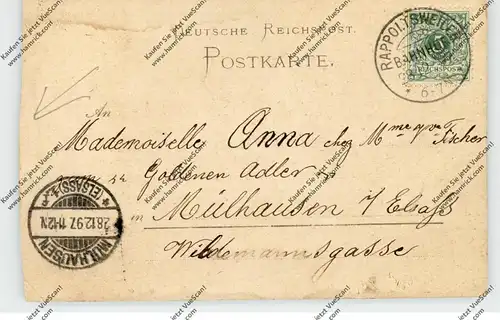 DEUTSCHE REICHSPOST.
POSTKARTE.
RAPPOLTSWEILER
BAHNHOF
6-7
REICHSPOST
An
Mademoiselle Anna chez Mme
Fischer
Goldenen Adler
in Mülhausen i/ Elsaß
Wildemannsgasse
MÜLHAUSEN
28.12.97. 11-12N.
(ELSASS)
Kaufen Sie jetzt VueScan!
www.hamrick.com